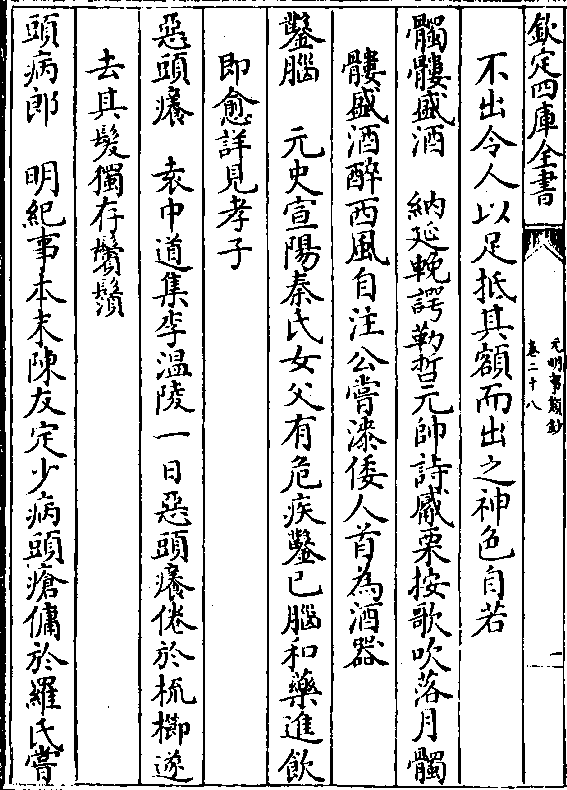 欽定四庫全書
元明事類鈔
卷二十八
二
不出令人以足抵其額而出之神色自若
髑髏盛酒　納延輓諤勒哲元帥詩觱栗按歌吹落月髑
髏盛酒醉西風自注公嘗漆倭人首為酒器
鑿腦　元史宣陽秦氏女父有危疾鑿己腦和藥進飲
即愈詳見孝子
惡頭癢　袁中道集李温陵一日惡頭癢倦於梳櫛遂
去其髮獨存鬢鬚
頭病郎　明紀事本末陳友定少病頭瘡傭於羅氏嘗